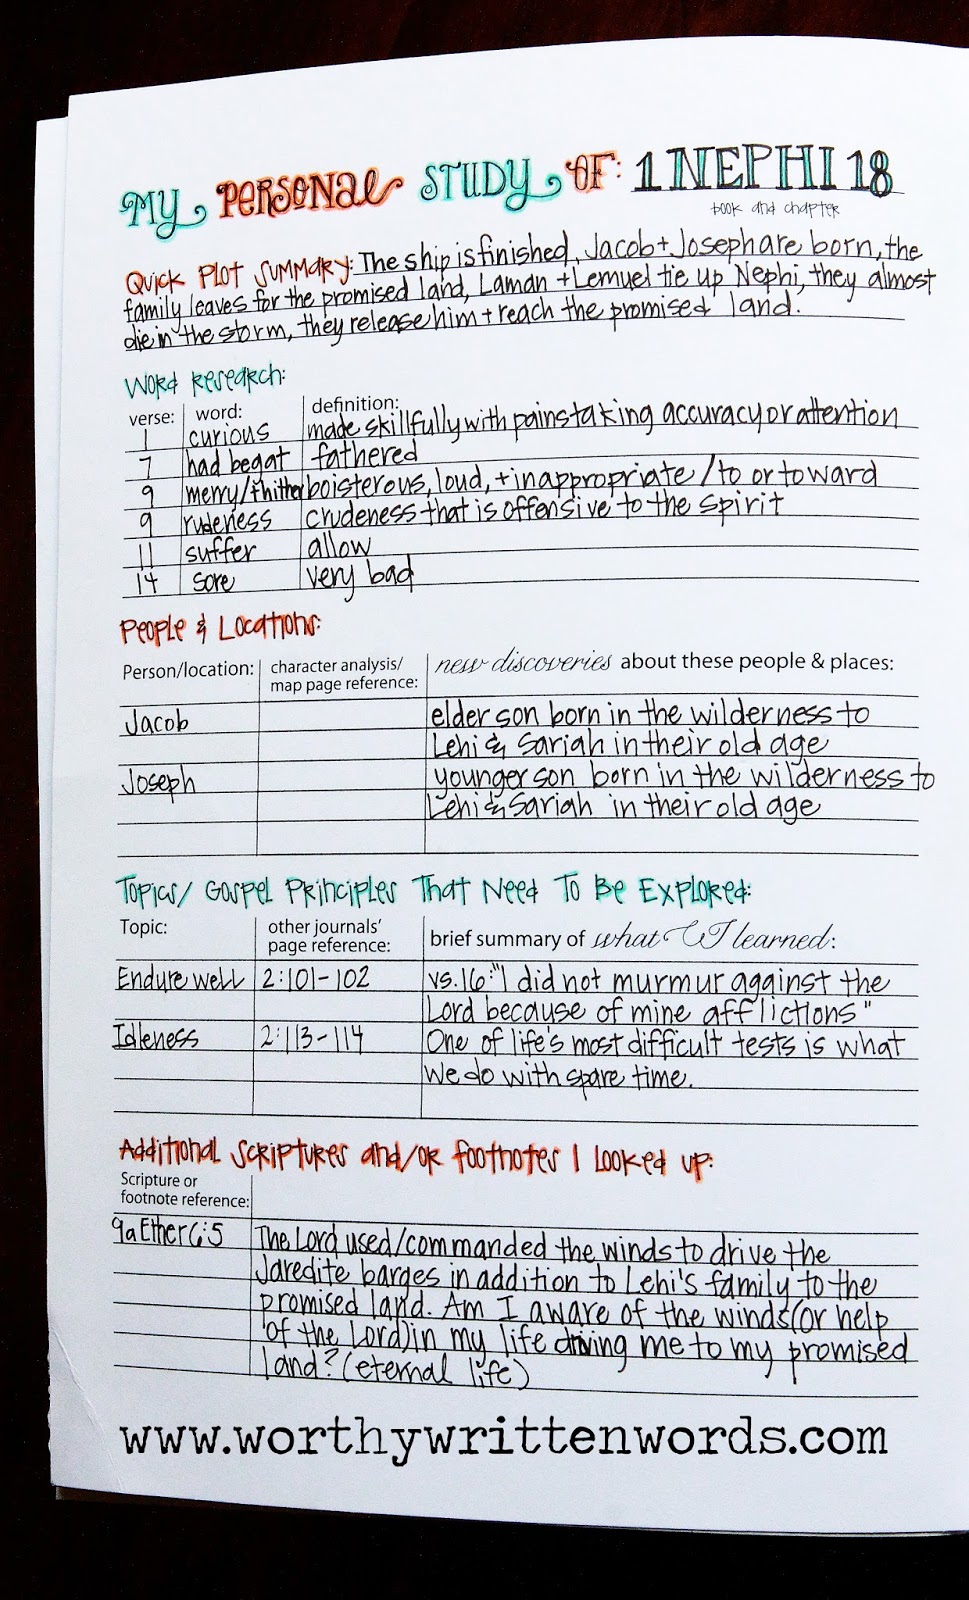 My Personal Study Of: 1 NEPHI 18
book and chapter
Quick Plot Summary: The ship is finished, Jacob + Joseph are born, the
family leaves for the promised land, Laman + Lemuel tie up Nephi, they almost
die in the storm, they release him + reach the promised land.
Word Research:
verse: word: definition:
1 curious made skillfully with painstaking accuracy or attention
7 had begat fathered
9 merry/thither boisterous, loud, + inappropriate / to or toward
9 rudeness crudeness that is offensive to the spirit
11 suffer allow
14 sore very bad
People & Locations:
Person/location: character analysis/ new discoveries about these people & places:
map page reference:
Jacob elder son born in the wilderness to
Lehi & Sariah in their old age
Joseph younger son born in the wilderness to
Lehi & Sariah in their old age
Topics/ Gospel Principles That Need To Be Explored:
Topic: other journals' brief summary of what I learned:
page reference:
Endure well 2:101-102 vs.16:"I did not murmur against the
Lord because of mine afflictions"
Idleness 2:113-114 One of life's most difficult tests is what
we do with spare time.
Additional Scriptures and/or footnotes I looked up:
Scripture or
footnote reference:
9a Ether 6:5 The Lord used/commanded the winds to drive the
Jaredite barges in addition to Lehi's family to the
promised land. Am I aware of the winds (or help
of the Lord) in my life driving me to my promised
land? (eternal life)
www.worthywrittenwords.com